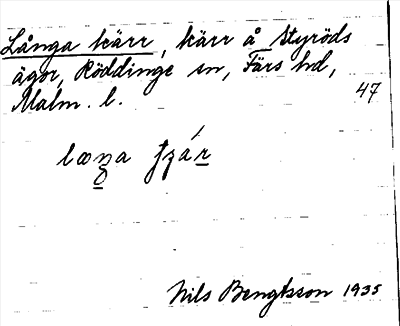 Långa kärr, kärr å Styröds
ägor, Röddinge sn, Färs hd,
Malm. l. 47
Nils Bengtsson 1935